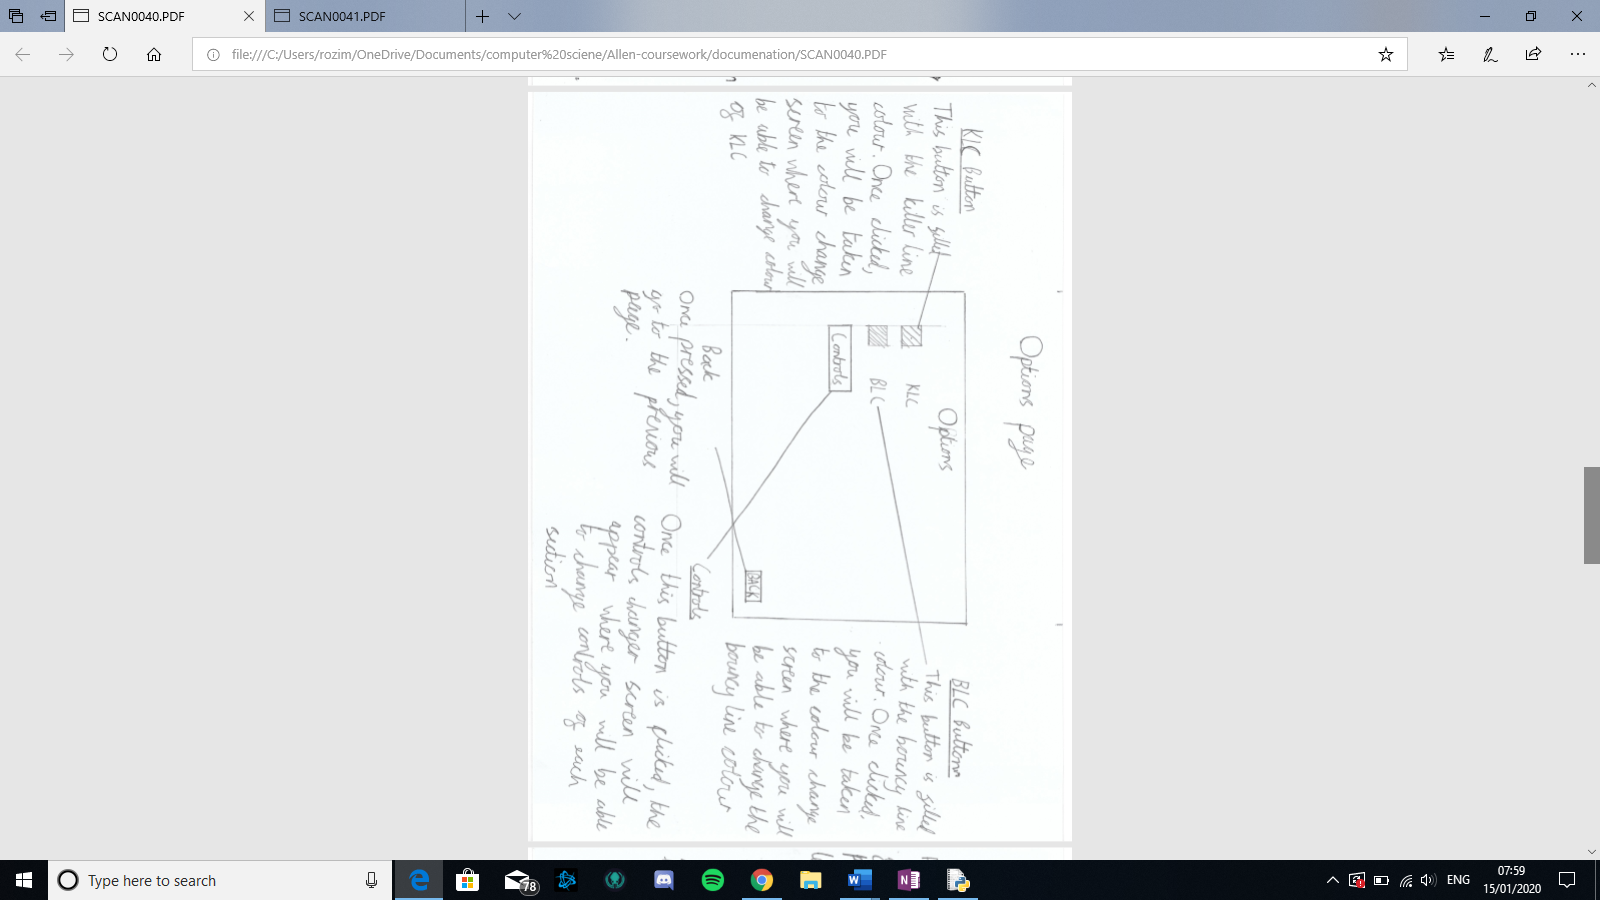 SCAN0040.PDF
SCAN0041.PDF
file:///C:/Users/rozim/OneDrive/Documents/computer%20sciene/Allen-coursework/documenation/SCAN0040.PDF
Options page
KLC Button
This button is filled
with the killer line
colour. Once clicked,
you will be taken
to the colour change
screen where you will
be able to change colour
of KLC
Options
KLC
BLC
Controls
BACK
BLC Button
This button is filled
with the bouncy line
colour. Once clicked,
you will be taken
to the colour change
screen where you will
be able to change the
bouncy line colour
Back
Once pressed, you will
go to the previous
page.
Controls
Once this button is clicked, the
controls changer screen will
appear where you will be able
to change controls of each
section
Type here to search
78
ENG
07:59
15/01/2020